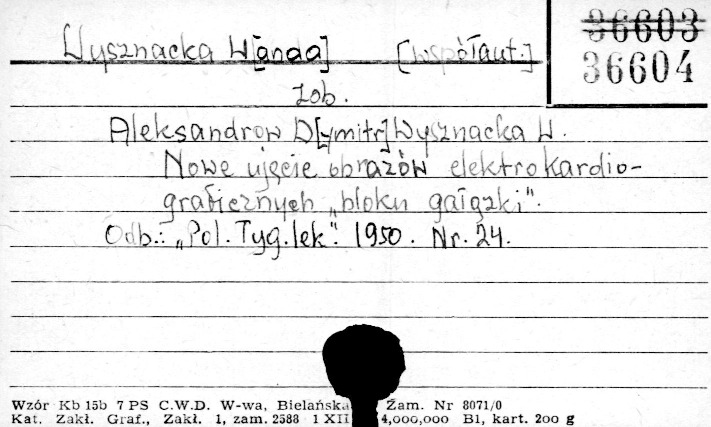 36603
36604
Wysznacka W[anda] [współaut.]
zob.
Aleksandrow D[ymitr] Wysznacka W.
Nowe ujęcie obrazów elektrokardio-
graficznych „bloku gałązki".
Odb.: „Pol. Tyg. lek". 1950. Nr. 24.
Wzór Kb 15b 7 PS C.W.D. W-wa, Bielańska Zam. Nr 8071/0
Kat. Zakł. Graf., Zakł. 1, zam. 2588 1 XII 4,000,000 B1, kart. 200 g